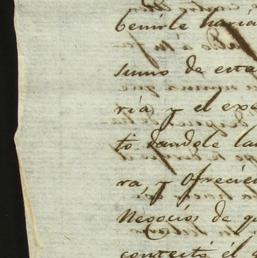 benirle havia
sumo de esta
ria, y el exa
to. dandole la
ra, y ofrecien
Negocios de q
contestó el